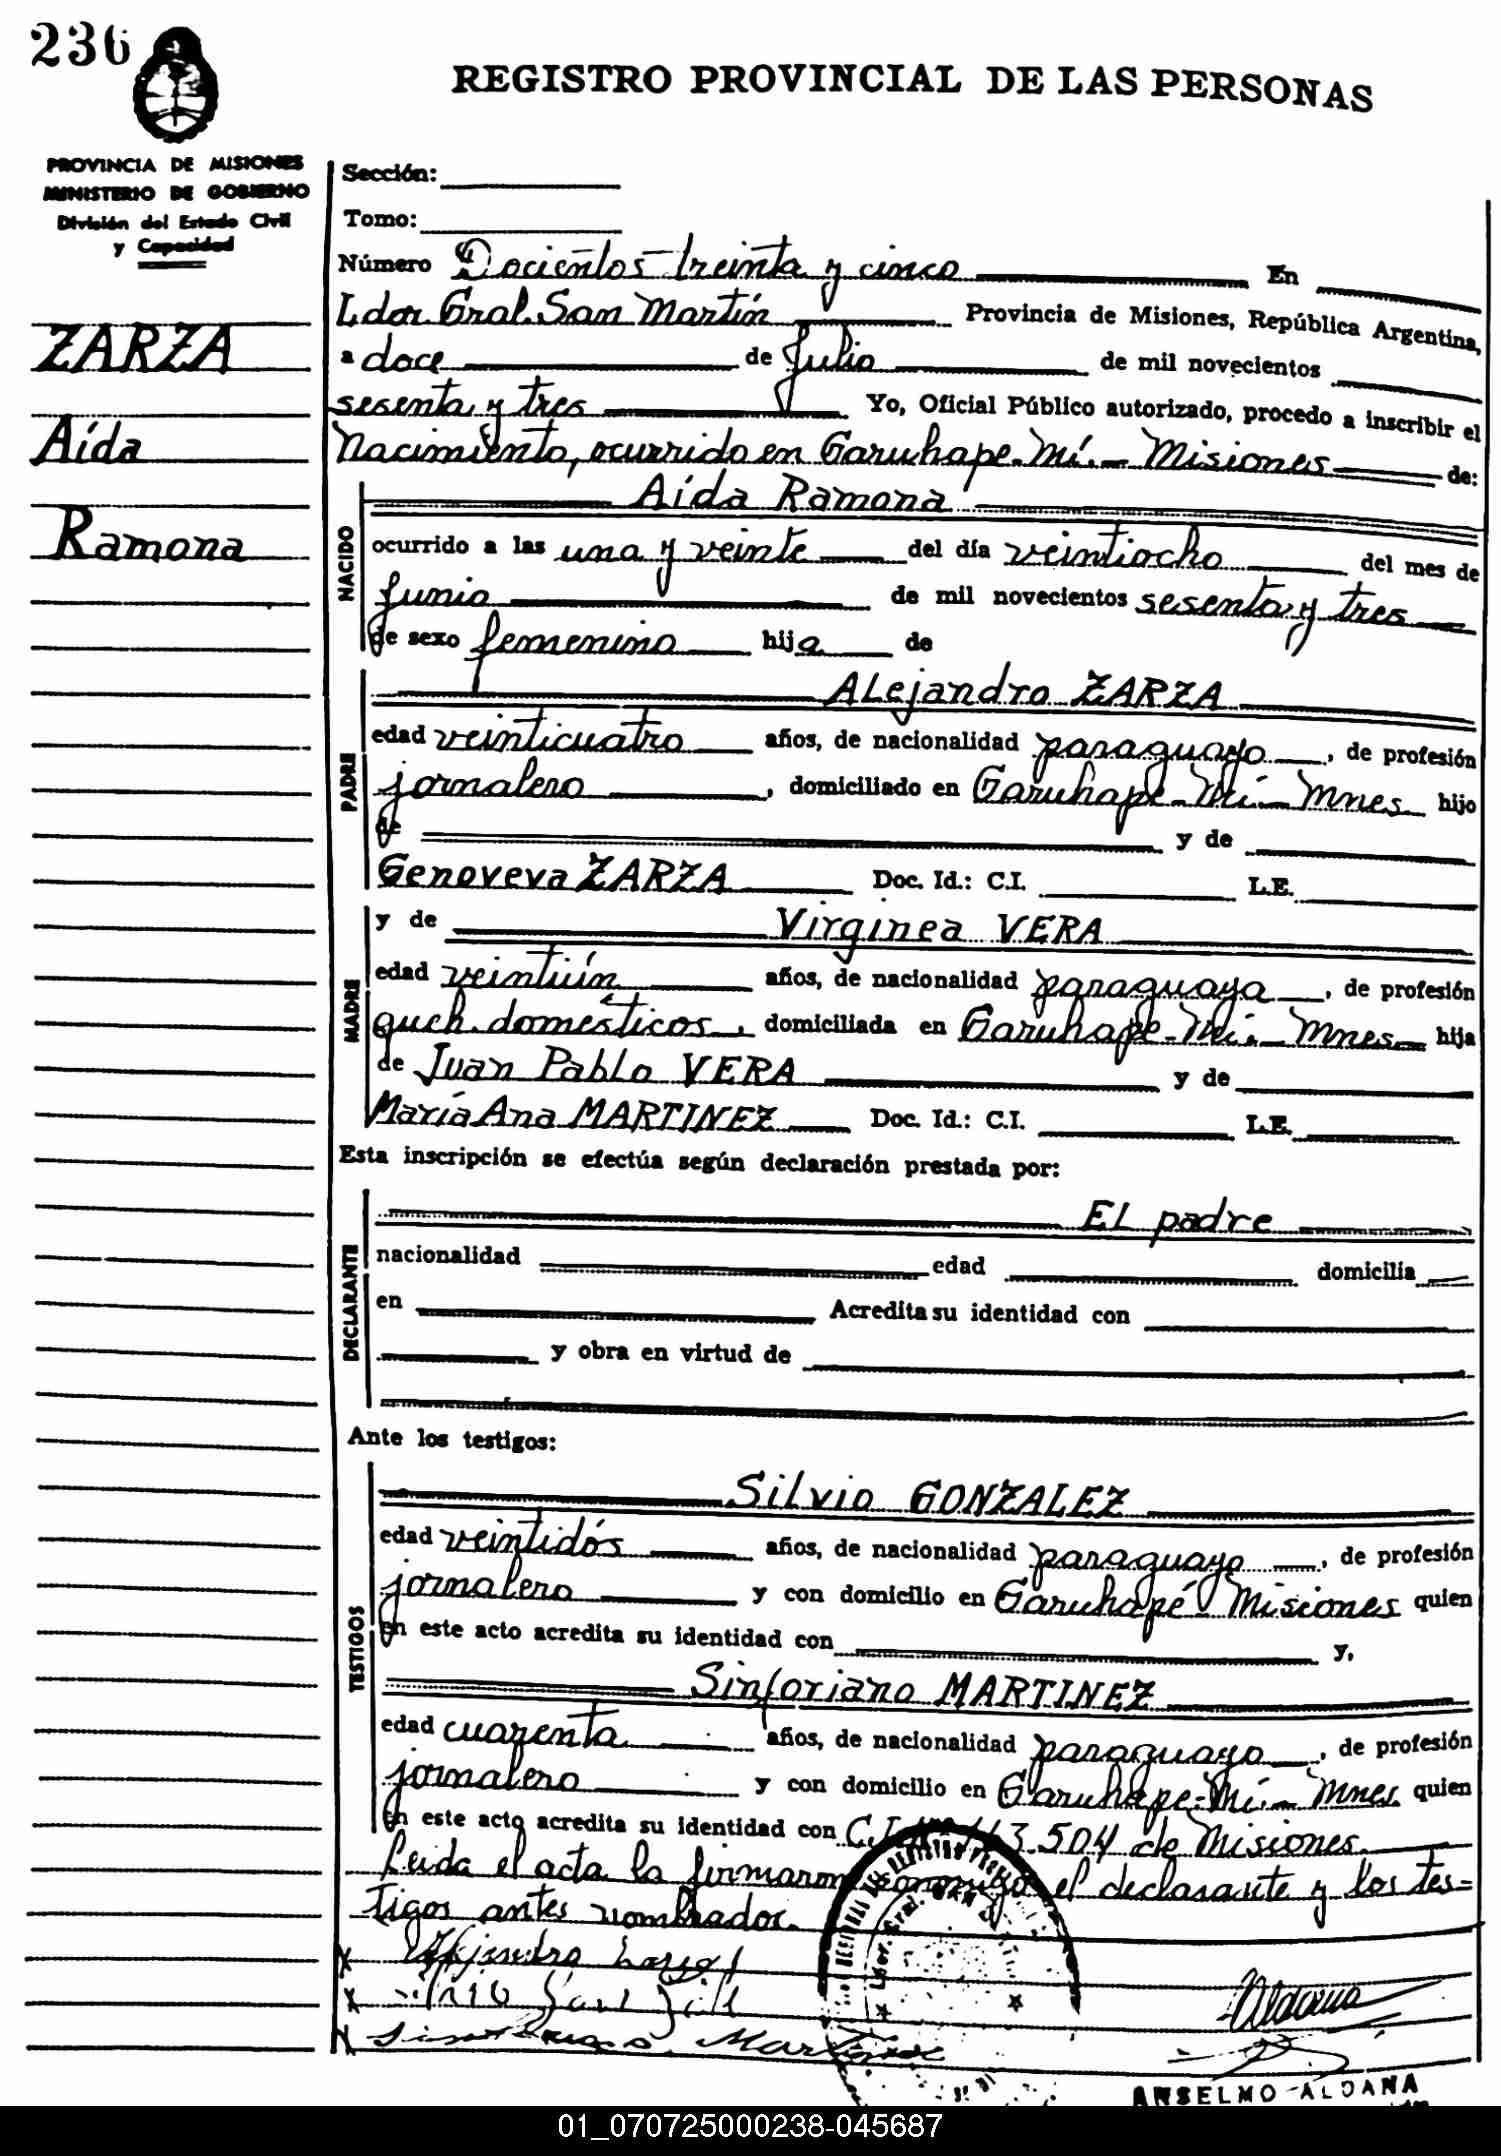 236
REGISTRO PROVINCIAL DE LAS PERSONAS
PROVINCIA DE MISIONES
MINISTERIO DE GOBIERNO
División del Estado Civil
y Capacidad
ZARZA
Aída
Ramona
Sección:
Tomo:
Número Docientos treinta y cinco En
Ldor. Gral. San Martín Provincia de Misiones, República Argentina,
a doce de Julio de mil novecientos
sesenta y tres Yo, Oficial Público autorizado, procedo a inscribir el
Nacimiento, ocurrido en Garuhape-Mí.- Misiones de:
NACIDO
Aída Ramona
ocurrido a las una y veinte del día veintiocho del mes de
Junio de mil novecientos sesenta y tres
de sexo femenino hija de
PADRE
ALejandro ZARZA
edad veinticuatro años, de nacionalidad paraguayo, de profesión
jornalero, domiciliado en Garuhape-Mí.- Mnes. hijo
de y de
Genoveva ZARZA Doc. Id.: C.I. L.E.
MADRE
y de Virginea VERA
edad veintiún años, de nacionalidad paraguaya, de profesión
quch. domésticos, domiciliada en Garuhape-Mí.- Mnes. hija
de Juan Pablo VERA y de
María Ana MARTINEZ Doc. Id.: C.I. L.E.
Esta inscripción se efectúa según declaración prestada por:
DECLARANTE
EL padre
nacionalidad edad domicilia
en Acredita su identidad con
y obra en virtud de
Ante los testigos:
TESTIGOS
Silvio GONZALEZ
edad veintidós años, de nacionalidad paraguayo, de profesión
jornalero y con domicilio en Garuhapé- Misiones quien
en este acto acredita su identidad con y,
Sinforiano MARTINEZ
edad cuarenta años, de nacionalidad paraguayo, de profesión
jornalero y con domicilio en Garuhape-Mí.- Mnes. quien
en este acto acredita su identidad con C.I. 3.504 de Misiones.
Leída el acta la firmaron conmigo el declarante y los tes=
tigos antes nombrados.
Martinez
Aldana
ANSELMO ALDANA
01_070725000238-045687